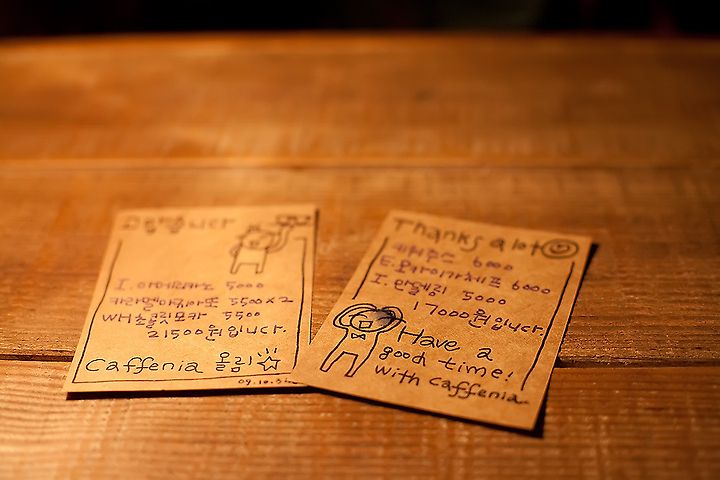 고맙습니다
I. 아메리카노 5000
카라멜마끼아또 5500×2
WH초콜릿모카 5500
21500원입니다.
Caffenia 올림
09.10.
Thanks a lot
6000
E. 6000
I. 만델링 5000
17000원입니다.
Have a
good time!
with caffenia